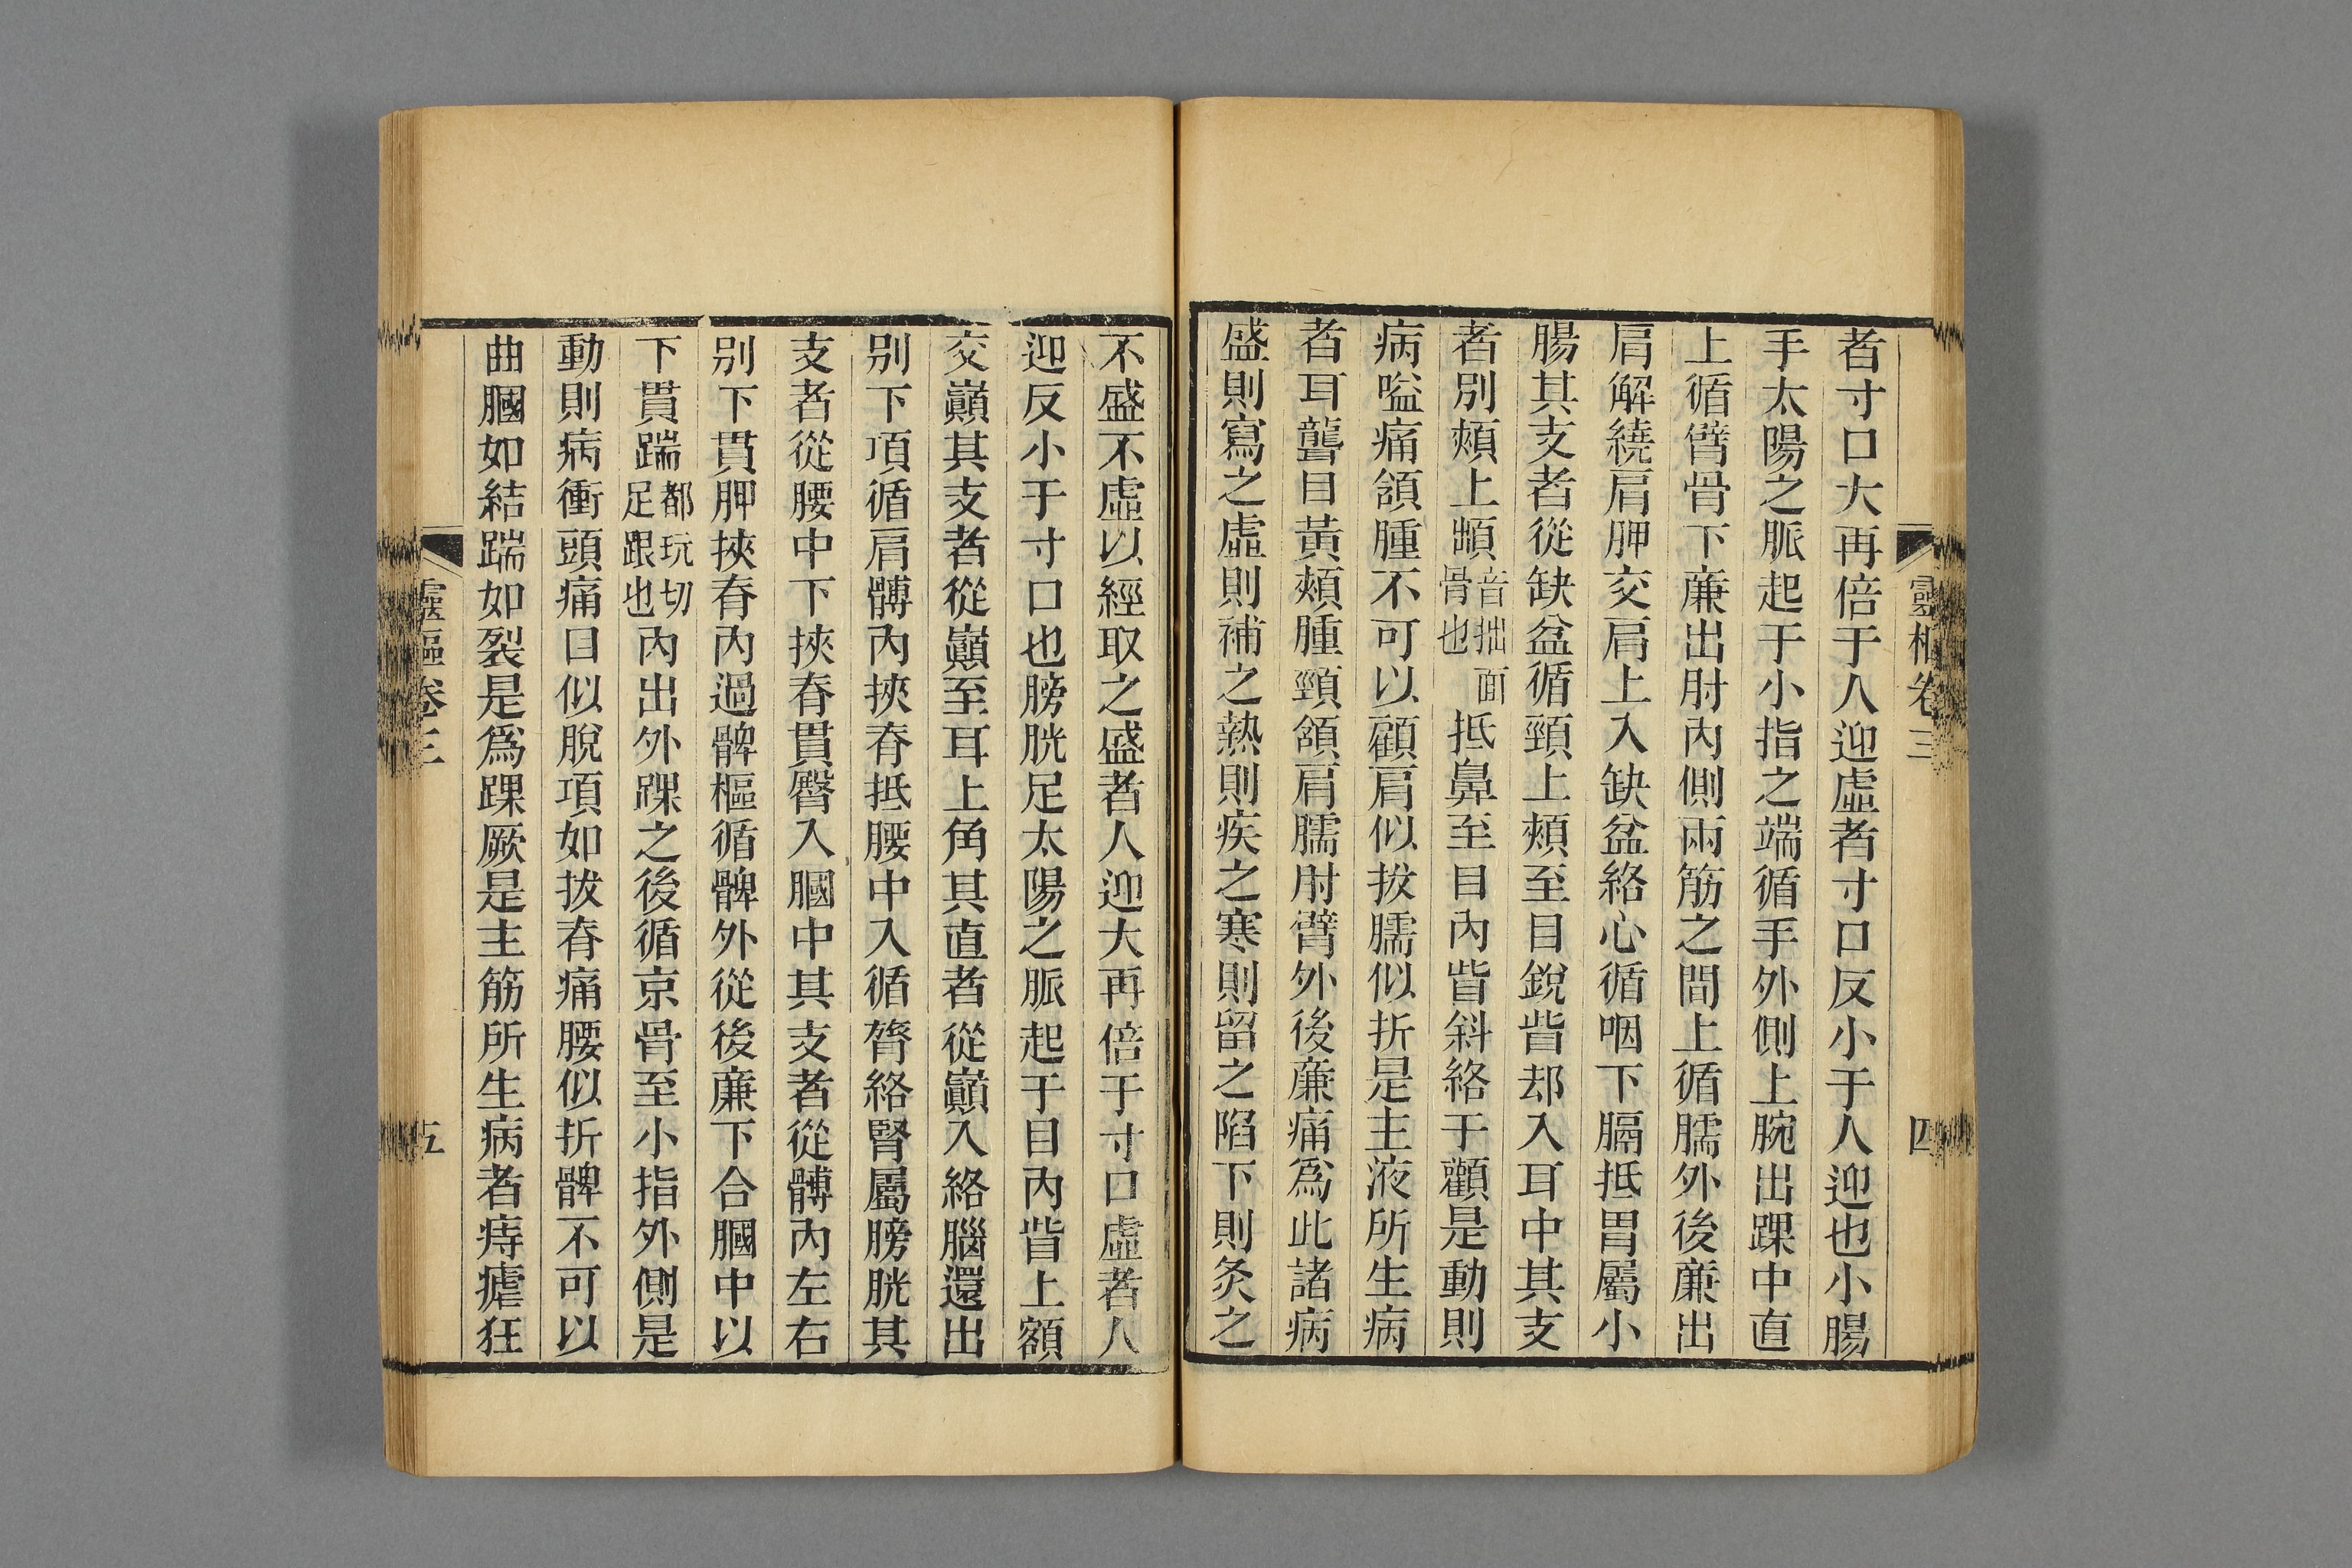 靈樞卷三 四
者寸口大再倍于人迎虛者寸口反小于人迎也小腸
手太陽之脈起于小指之端循手外側上腕出踝中直
上循臂骨下廉出肘內側兩筋之間上循臑外後廉出
肩解繞肩胛交肩上入缺盆絡心循咽下膈抵胃屬小
腸其支者從缺盆循頸上頰至目銳眥却入耳中其支
者別頰上䪼音拙面骨也抵鼻至目內眥斜絡于顴是動則
病嗌痛頷腫不可以顧肩似拔臑似折是主液所生病
者耳聾目黃頰腫頸頷肩臑肘臂外後廉痛爲此諸病
盛則寫之虛則補之熱則疾之寒則留之陷下則灸之
不盛不虛以經取之盛者人迎大再倍于寸口虛者人
迎反小于寸口也膀胱足太陽之脈起于目內眥上額
交巔其支者從巔至耳上角其直者從巔入絡腦還出
别下項循肩髆內挾脊抵腰中入循膂絡腎屬膀胱其
支者從腰中下挾脊貫臀入膕中其支者從髆內左右
别下貫胛挾脊內過髀樞循髀外從後廉下合膕中以
下貫踹都玩切足跟也內出外踝之後循京骨至小指外側是
動則病衝頭痛目似脫項如拔脊痛腰似折髀不可以
曲膕如結踹如裂是爲踝厥是主筋所生病者痔瘧狂
靈樞卷三 五